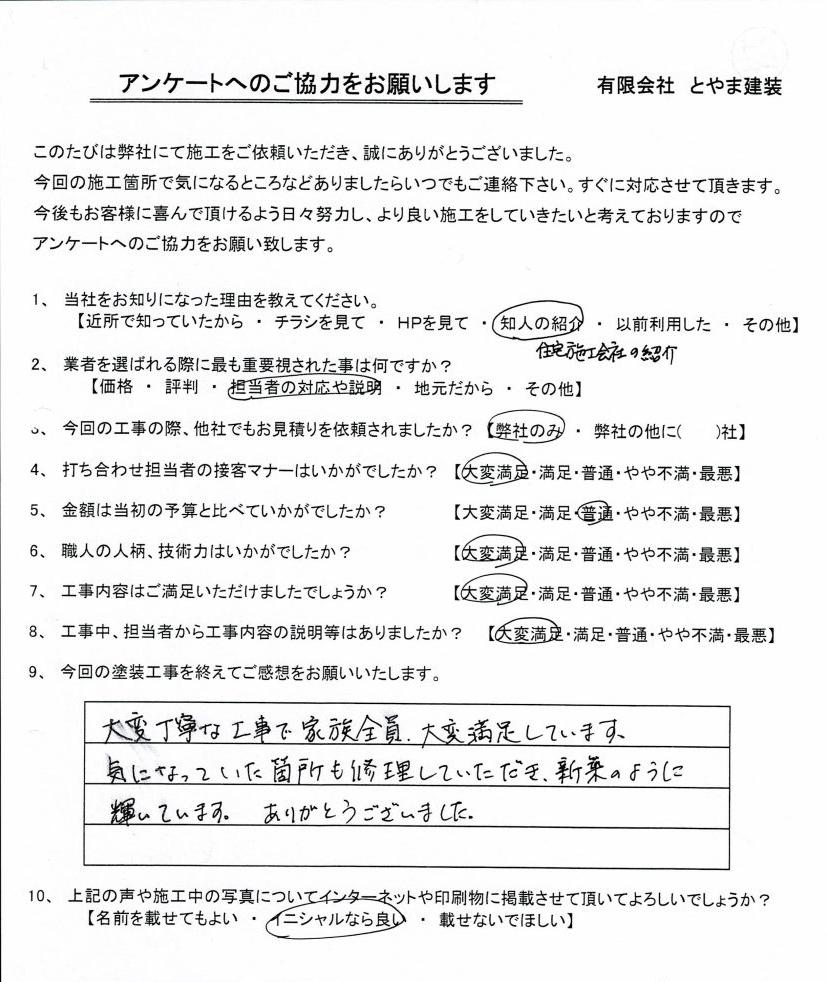 アンケートへのご協力をお願いします 有限会社 とやま建装
このたびは弊社にて施工をご依頼いただき、誠にありがとうございました。
今回の施工箇所で気になるところなどありましたらいつでもご連絡下さい。すぐに対応させて頂きます。
今後もお客様に喜んで頂けるよう日々努力し、より良い施工をしていきたいと考えておりますので
アンケートへのご協力をお願い致します。
1、 当社をお知りになった理由を教えてください。
【近所で知っていたから ・ チラシを見て ・ HPを見て ・ 知人の紹介 ・ 以前利用した ・ その他】
住宅施工会社の紹介
2、 業者を選ばれる際に最も重要視された事は何ですか？
【価格 ・ 評判 ・ 担当者の対応や説明 ・ 地元だから ・ その他】
3、 今回の工事の際、他社でもお見積りを依頼されましたか？ 【弊社のみ ・ 弊社の他に( )社】
4、 打ち合わせ担当者の接客マナーはいかがでしたか？ 【大変満足・満足・普通・やや不満・最悪】
5、 金額は当初の予算と比べていかがでしたか？ 【大変満足・満足・普通・やや不満・最悪】
6、 職人の人柄、技術力はいかがでしたか？ 【大変満足・満足・普通・やや不満・最悪】
7、 工事内容はご満足いただけましたでしょうか？ 【大変満足・満足・普通・やや不満・最悪】
8、 工事中、担当者から工事内容の説明等はありましたか？ 【大変満足・満足・普通・やや不満・最悪】
9、 今回の塗装工事を終えてご感想をお願いいたします。
大変丁寧な工事で家族全員、大変満足しています。
気になっていた箇所も修理していただき、新築のように
輝いています。 ありがとうございました。
10、 上記の声や施工中の写真についてインターネットや印刷物に掲載させて頂いてよろしいでしょうか？
【名前を載せてもよい ・ イニシャルなら良い ・ 載せないでほしい】